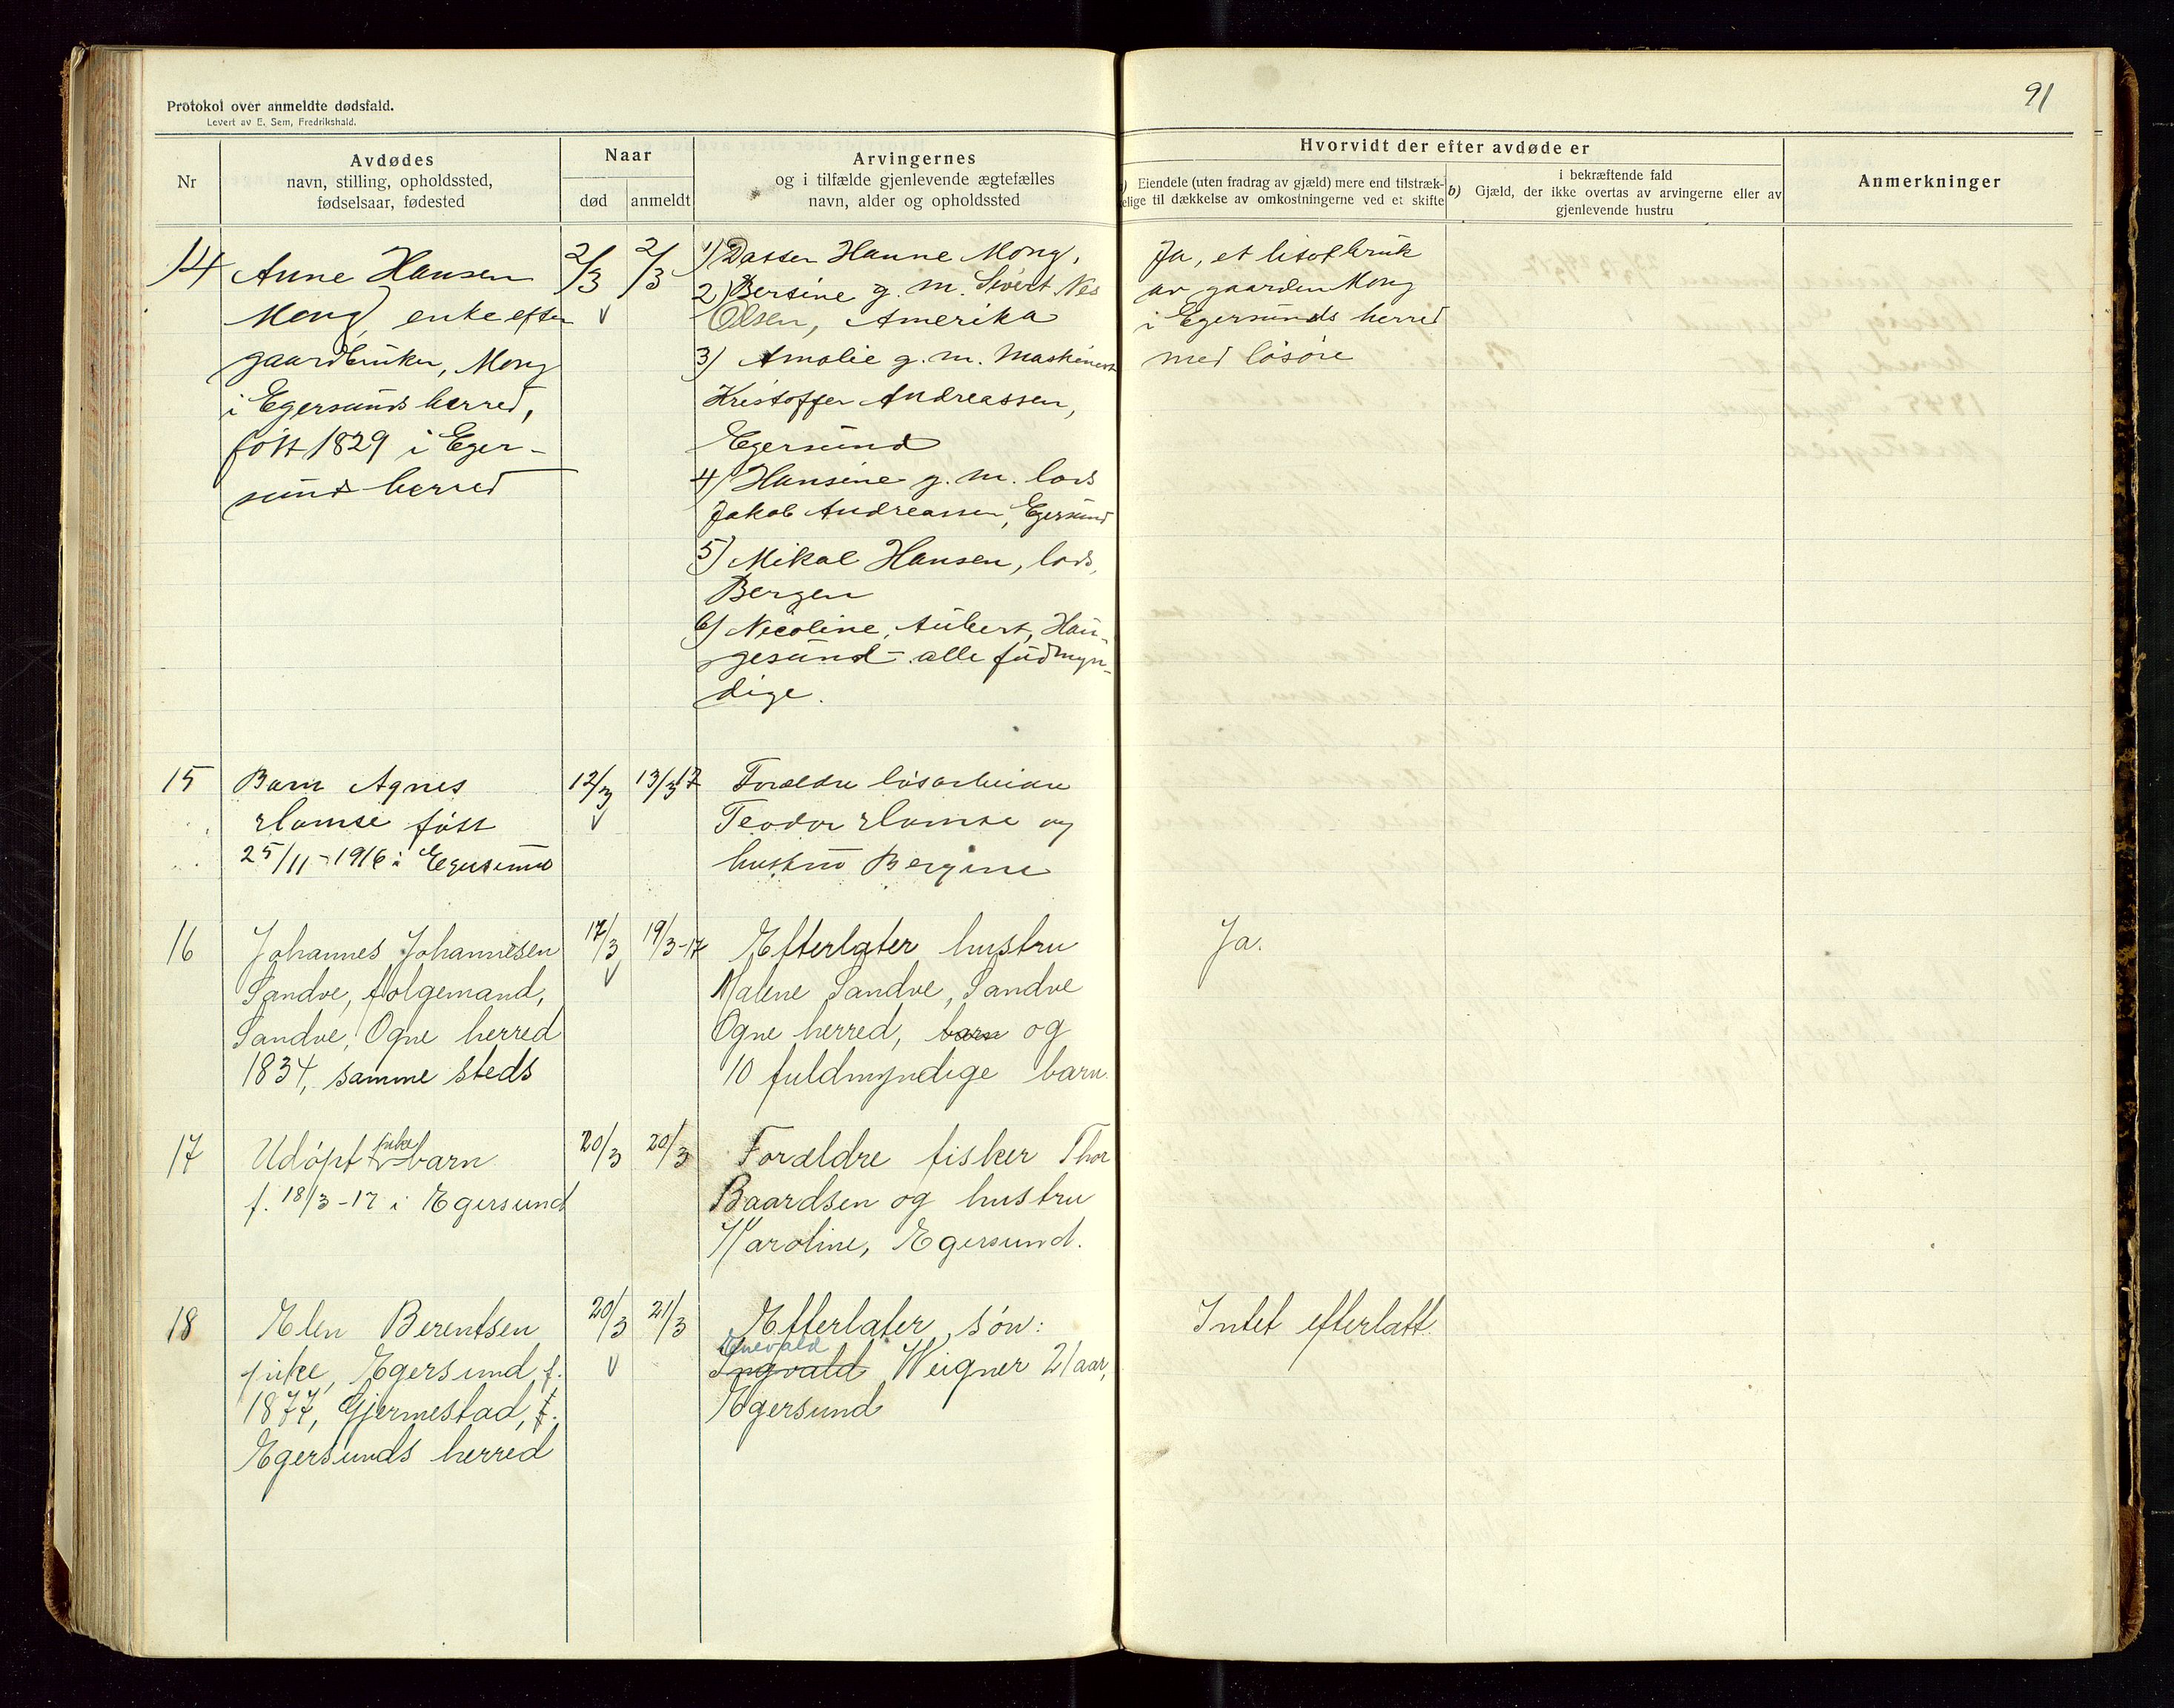 Protokol over anmeldte dødsfald.
Levert av E. Sem, Fredrikshald.
91
Nr
Avdødes
navn, stilling, opholdssted,
fødselsaar, fødested
Naar
død
anmeldt
Arvingernes
og i tilfælde gjenlevende ægtefælles
navn, alder og opholdssted
Hvorvidt der efter avdøde er
Eiendele (uten fradrag av gjæld) mere end tilstræk-
kelige til dækkelse av omkostningerne ved et skifte
i bekræftende fald
b) Gjæld, der ikke overtas av arvingerne eller av
gjenlevende hustru
Anmerkninger
14
Anne Hansen
Mong, enke efter
gaardbruker, Mong
i Egersunds herred,
født 1829 i Eger-
sunds herred
2/3
2/3
1) Datter Hanne Mong,
2) Bertine g. m. Sivert Nes
Olsen, Amerika
3) Amalie g. m. Maskinist
Kristoffer Andreassen,
Egersund
4) Hansine g. m. lods
Jakob Andreassen, Egersund
5) Mikal Hansen, lods,
Bergen
6) Nicoline, Aubert, Hau-
gesund - alle fuldmyn-
dige.
Ja, et litet bruk
av gaarden Mong
i Egersunds herred
med løsøre
15
Barn Agnes
født
25/11-1916 i Egersund
12/3
13/3 17
Forældre løsarbeider
Teodor og
hustru Bergine
16
Johannes Johannesen
Sandve, følgemand,
Sandve, Ogne herred
1834, samme steds
17/3
19/3-17
Efterlater hustru
Malene Sandve, Sandve
Ogne herred, barn og
10 fuldmyndige barn.
Ja.
17
Udøpt pike barn
f. 18/3-17 i Egersund
20/3
20/3
Forældre fisker Thor
Baardsen og hustru
Karoline, Egersund.
18
Elen Berentsen
pike, Egersund, f.
1877, Gjermestad, f.
Egersunds herred
20/3
21/3
Efterlater søn:
Enevald
Ingvald Weigner 21 aar,
Egersund
Intet efterlatt.